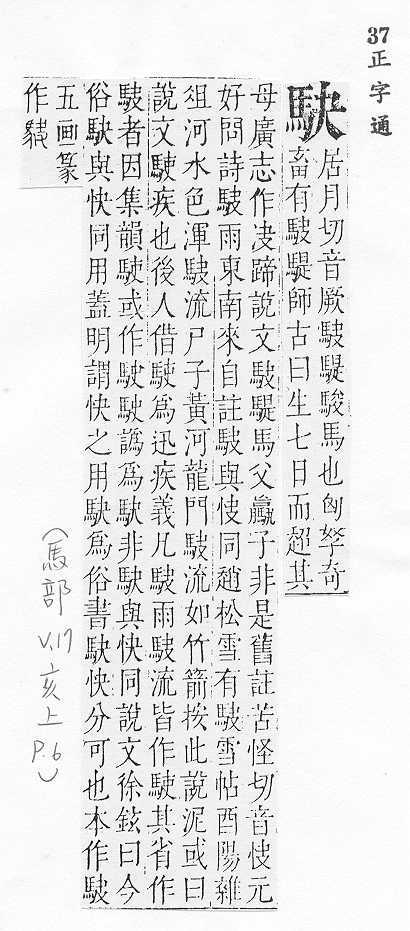 37 正字通
駃
居月切音厥駃騠駿馬也匈拏奇
畜有駃騠師古曰生七日而超其
母廣志作决蹄說文駃騠馬父驘子非是舊註苦怪切音快元
好問詩駃雨東南來自註駃與快同趙松雪有駃雪帖酉陽雜
俎河水色渾駃流尸子黃河龍門駃流如竹箭按此說泥或曰
說文駛疾也後人借駛為迅疾義凡駃雨駃流皆作駛其省作
駃者因集韻駛或作駃駛譌為駃非駃與快同說文徐鉉曰今
俗駃與快同用蓋明謂快之用駃為俗書駃快分可也本作駃
五画篆
作
(馬部
V.17
亥上
P.6)